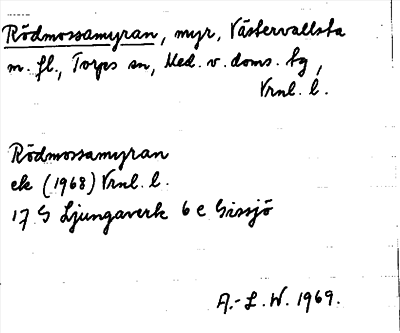 Rödmossamyran, myr, Västervallsta
m. fl., Torps sn, Med. v. doms. tg,
Vrnl. l.
Rödmossamyran
ek (1968) Vrnl. l.
17 G Ljungaverk 6 c Gissjö
A.-L. W. 1969.